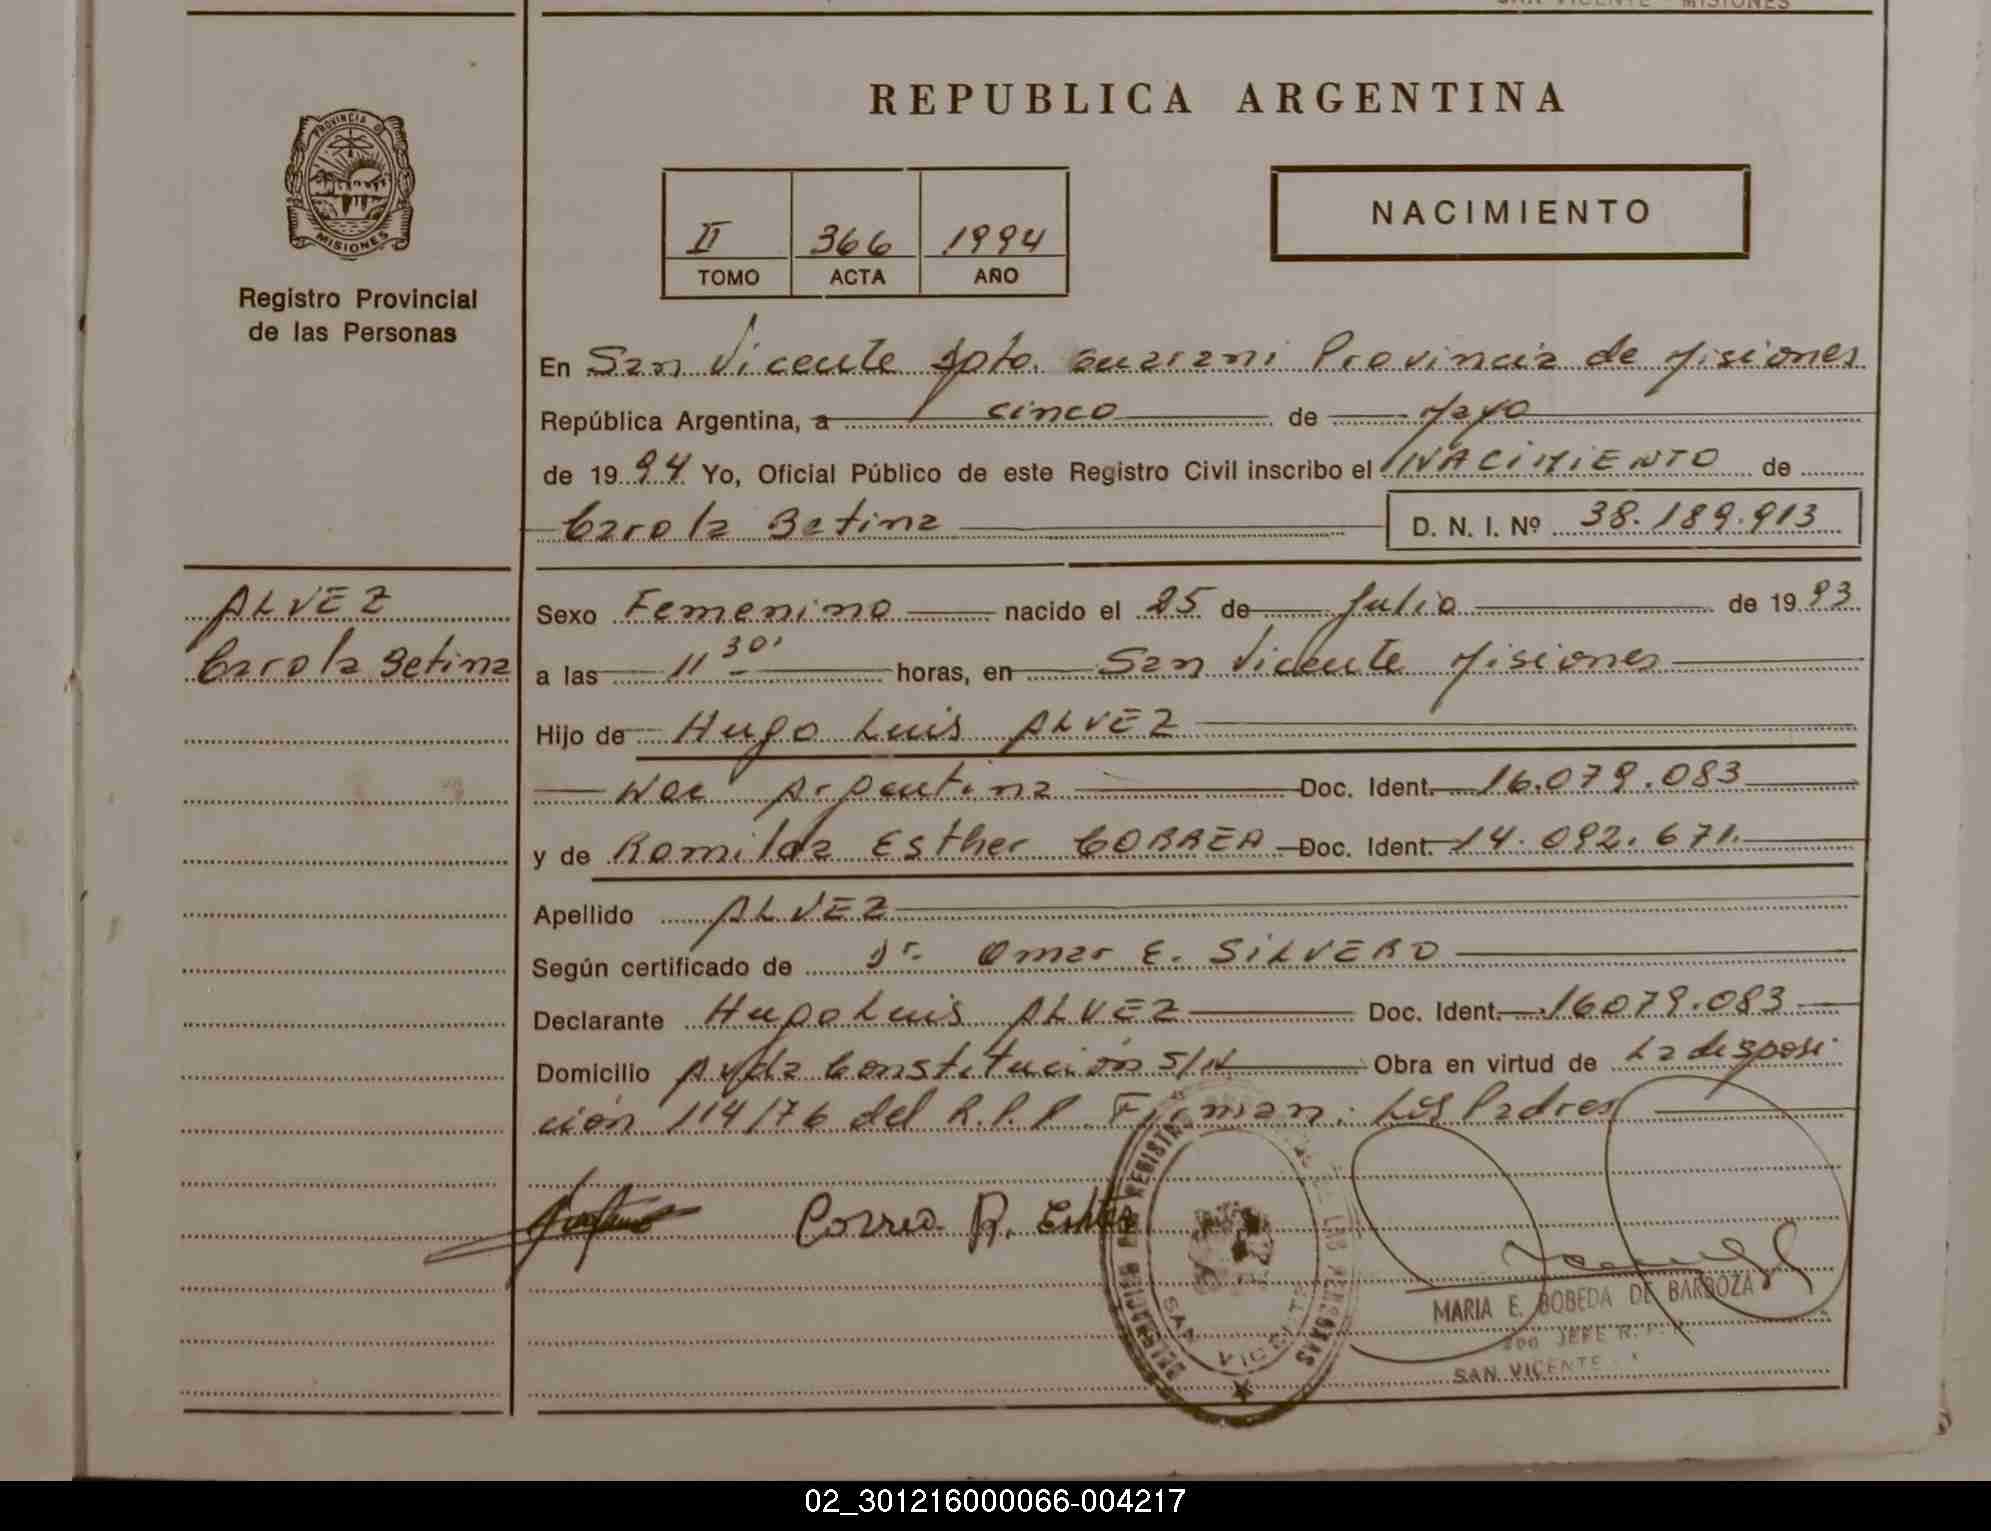 SAN VICENTE - MISIONES
REPUBLICA ARGENTINA
PROVINCIA D
MISIONES
Registro Provincial
de las Personas
II 366 1994
TOMO ACTA AÑO
NACIMIENTO
En San Vicente Dpto. Guarani Provincia de Misiones
República Argentina, a cinco de Mayo
de 1994 Yo, Oficial Público de este Registro Civil inscribo el NACIMIENTO de
Carola Betina D. N. I. Nº 38.189.913
ALVEZ
Carola Betina
Sexo Femenino nacido el 25 de Julio de 1993
a las 11 30' horas, en San Vicente Misiones
Hijo de Hugo Luis ALVEZ
Nac Argentina Doc. Ident. 16.079.083
y de Romilda Esther CORREA Doc. Ident. 14.092.671.
Apellido ALVEZ
Según certificado de Dr. Omar E. SILVERO
Declarante Hugo Luis ALVEZ Doc. Ident. 16079.083
Domicilio Avda Constitución S/N Obra en virtud de La disposi
ción 114/76 del R.P.P. Firman: Los Padres
Correa R. Esther
DELEGACION DEL REGISTRO DE LAS PERSONAS
SAN VICENTE
MARIA E. BOBEDA DE BARBOZA
JEFE R. P. P.
SAN VICENTE
02_301216000066-004217